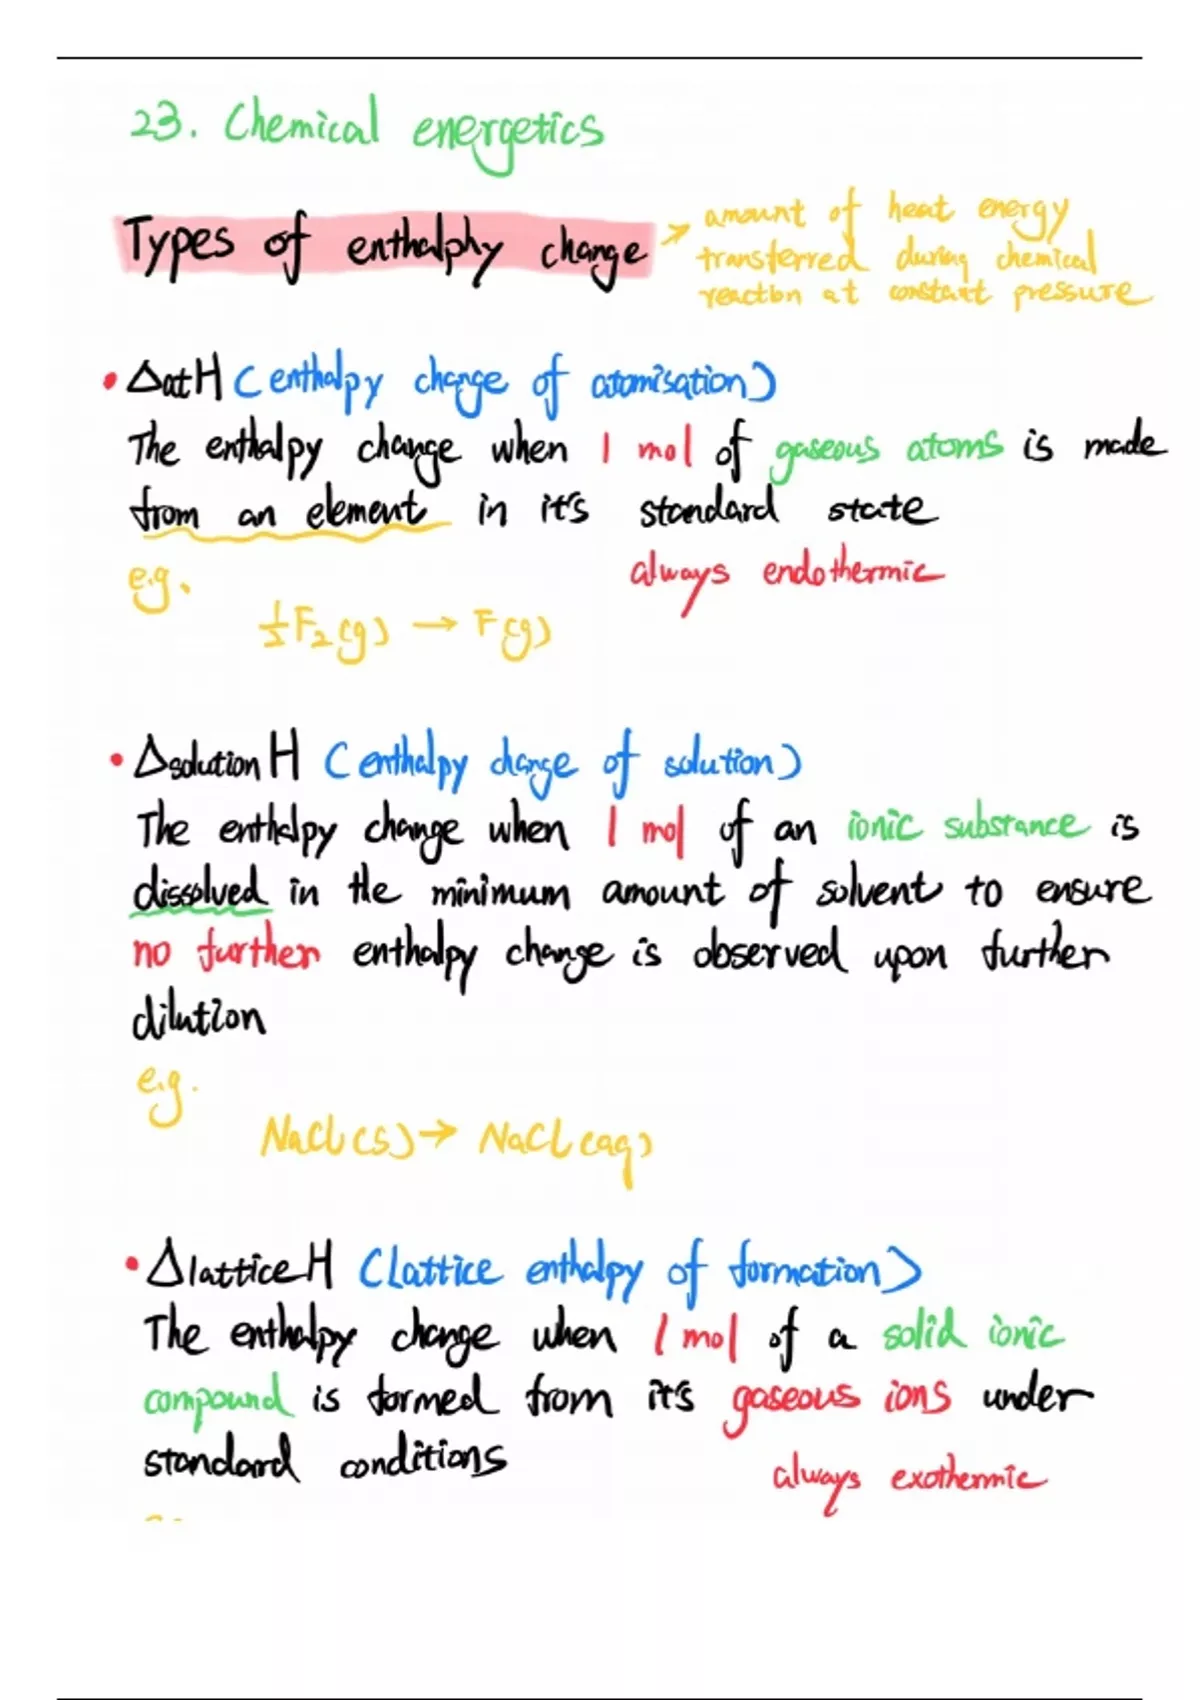 23. Chemical energetics
Types of enthalphy change → amount of heat energy
transferred during chemical
reaction at constant pressure
• ΔatH (enthalpy change of atomisation)
The enthalpy change when 1 mol of gaseous atoms is made
from an element in it's standard state
always endothermic
e.g.
½F₂(g) → F(g)
• ΔsolutionH (enthalpy change of solution)
The enthalpy change when 1 mol of an ionic substance is
dissolved in the minimum amount of solvent to ensure
no further enthalpy change is observed upon further
dilution
e.g.
NaCl(s) → NaCl(aq)
• ΔlatticeH (Lattice enthalpy of formation)
The enthalpy change when 1 mol of a solid ionic
compound is formed from it's gaseous ions under
standard conditions
always exothermic